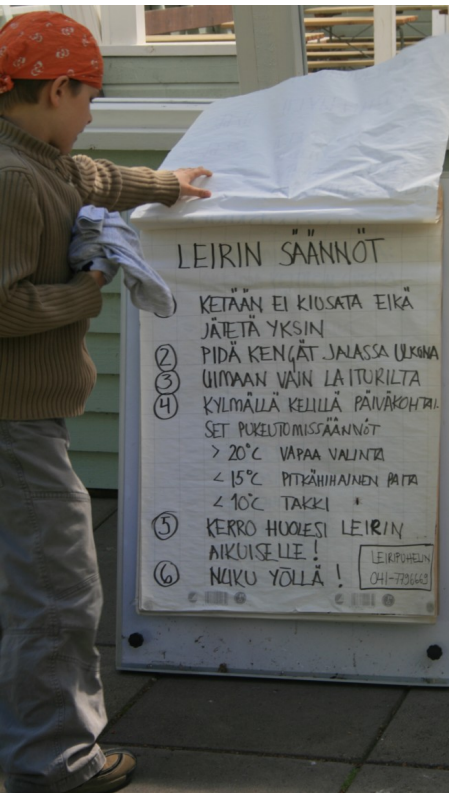 LEIRIN SÄÄNNÖT
1 KETÄÄN EI KIUSATA EIKÄ
JÄTETÄ YKSIN
2 PIDÄ KENGÄT JALASSA ULKONA
3 UIMAAN VAIN LAITURILTA
4 KYLMÄLLÄ KELILLÄ PÄIVÄKOHTAI-
SET PUKEUTUMISSÄÄNNÖT
> 20°C VAPAA VALINTA
< 15°C PITKÄHIHAINEN PAITA
< 10°C TAKKI
5 KERRO HUOLESI LEIRIN
AIKUISELLE!
6 NUKU YÖLLÄ!
LEIRIPUHELIN
041-7796669